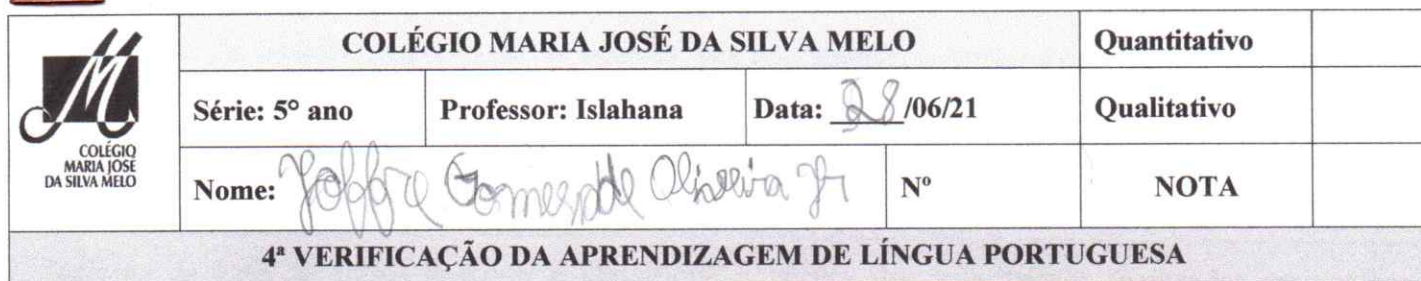 COLÉGIO MARIA JOSÉ DA SILVA MELO
Quantitativo
COLÉGIO
MARIA JOSÉ
DA SILVA MELO
Série: 5° ano
Professor: Islahana
Data: 28/06/21
Qualitativo
Nome: Joffre Gomes de Oliveira Jr
Nº
NOTA
4ª VERIFICAÇÃO DA APRENDIZAGEM DE LÍNGUA PORTUGUESA